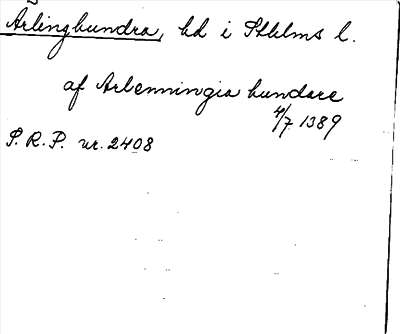 Ärlinghundra, hd i Sthlms l.
af Arlenningia hundare
4/7 1389
S. R. P. nr. 2408